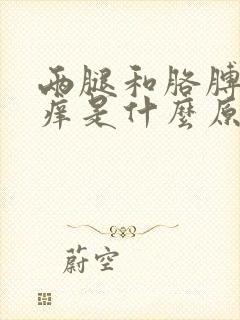 两腿和胳膊
痒是什麼原
蔚空